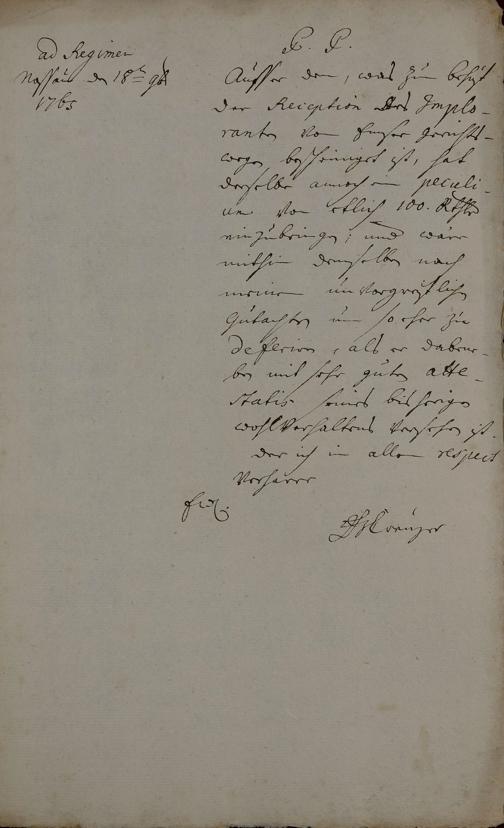 ad Regimen
Nassau den 18ten 9br
1765
P. P.
Ausser dem, was zum behuf
der Reception des Implo-
ranten vom Emser Gerichts-
wegen bescheiniget ist, hat
derselbe annoch ein peculi-
um von etlich 100. Rthlr
einzubringen; und wäre
mithin demselben nach
meinem unvorgreiflichen
Gutachten um so eher zu
deferiren, als er darne-
ben mit sehr guten atte-
statis seines bisherigen
wohlverhaltens versehen ist.
der ich in allem respect
verharre
Creuzer